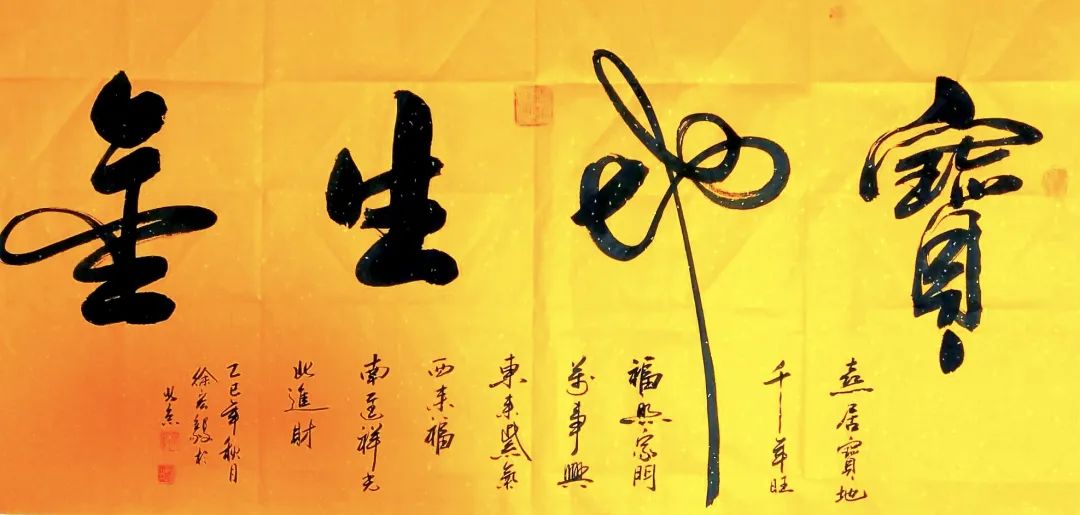 寶地生金
喜居寶地
千年旺
福照家門
萬事興
東来紫氣
西来福
南至祥光
北進財
乙巳年秋月
徐宏毅於
北京